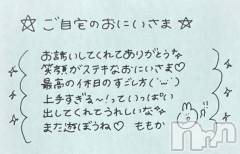 ☆ ご自宅のおにいさま ☆
お誘いしてくれてありがとうな
笑顔がステキなおにいさま♡
最高のイ休日のすごし方(˙꒳˙)
上手すぎる~!っていっぱい
出してくれてうれしいな
また遊ぼうね♡ ももか